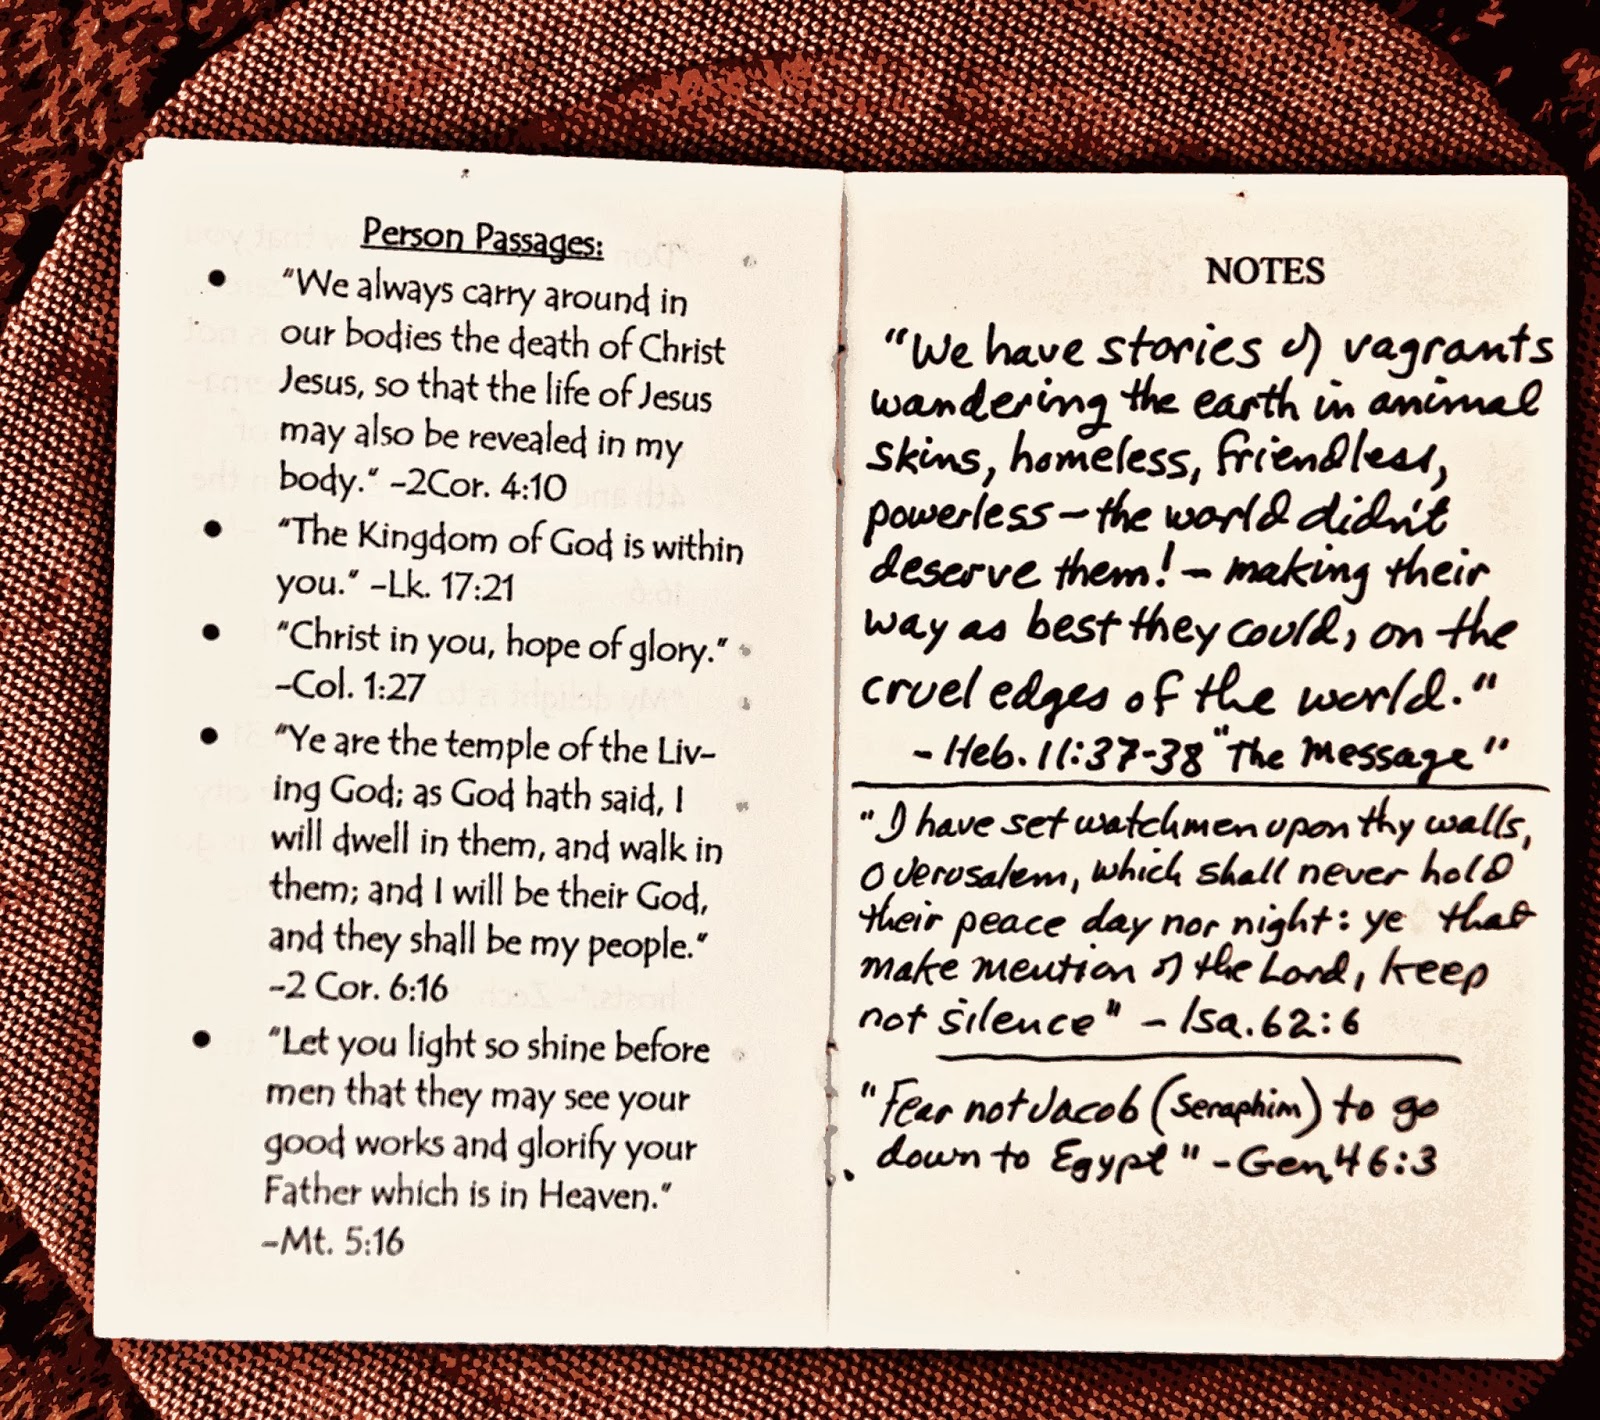 Person Passages:
• "We always carry around in
our bodies the death of Christ
Jesus, so that the life of Jesus
may also be revealed in my
body." -2Cor. 4:10
• "The Kingdom of God is within
you." -Lk. 17:21
• "Christ in you, hope of glory."
-Col. 1:27
• "Ye are the temple of the Liv-
ing God; as God hath said, I
will dwell in them, and walk in
them; and I will be their God,
and they shall be my people."
-2 Cor. 6:16
• "Let you light so shine before
men that they may see your
good works and glorify your
Father which is in Heaven."
-Mt. 5:16
NOTES
"We have stories of vagrants
wandering the earth in animal
skins, homeless, friendless,
powerless - the world didn't
deserve them! - making their
way as best they could, on the
cruel edges of the world."
- Heb. 11:37-38 "The Message"
"I have set watchmen upon thy walls,
O Jerusalem, which shall never hold
their peace day nor night: ye that
make mention of the Lord, keep
not silence" - Isa. 62:6
"Fear not Jacob (Seraphim) to go
down to Egypt" - Gen. 46:3